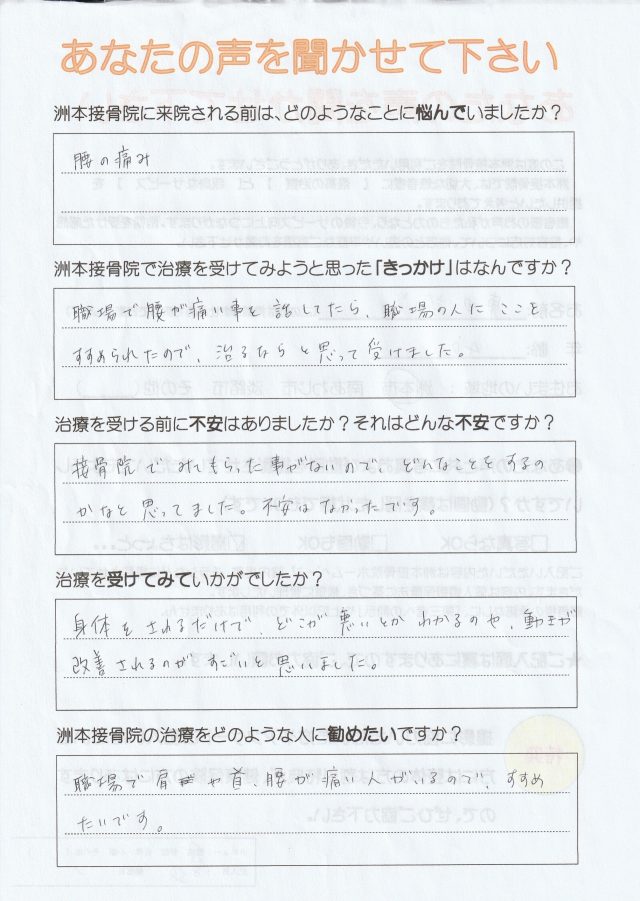 あなたの声を聞かせて下さい
洲本接骨院に来院される前は、どのようなことに悩んでいましたか？
腰の痛み
洲本接骨院で治療を受けてみようと思った「きっかけ」はなんですか？
職場で腰が痛い事を話してたら、職場の人にここを
すすめられたので、治るならと思って受けました。
治療を受ける前に不安はありましたか？それはどんな不安ですか？
接骨院でみてもらった事がないので、どんなことをするの
かなと思ってました。不安はなかったです。
治療を受けてみていかがでしたか？
身体をされるだけで、どこが悪いとかわかるのや、動きが
改善されるのがすごいと思いました。
洲本接骨院の治療をどのような人に勧めたいですか？
職場で肩や首、腰が痛い人がいるので、すすめ
たいです。